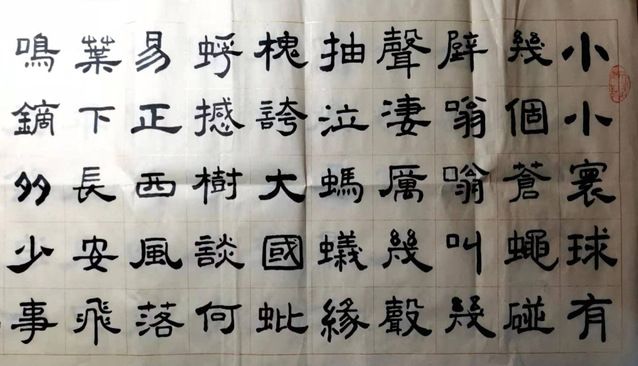 小小寰球有
幾個蒼蠅碰
壁嗡嗡叫幾
聲凄厲幾聲
抽泣螞蟻緣
槐誇大國蚍
蜉撼樹談何
易正西風落
葉下長安飛
鳴鏑多少事